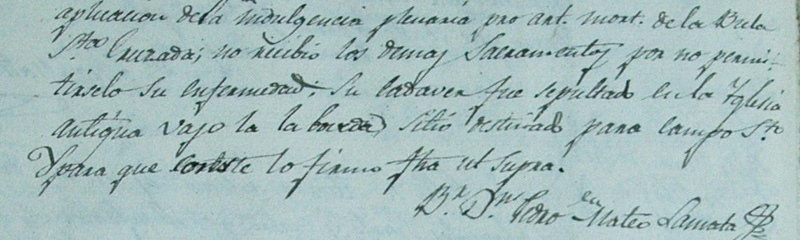 aplicacion de la indulgencia plenaria pro art. mort. de la Bula
Sta Cruzada; no recibio los demas Sacramentos por no permi-
tirselo su enfermedad: Su cadaver fue sepultado en la Yglesia
antigua vajo la sitio destinado para campo Sto
Y para que conste lo firmo fha ut supra.
Br. Dn. Pedro Mateo Lamata